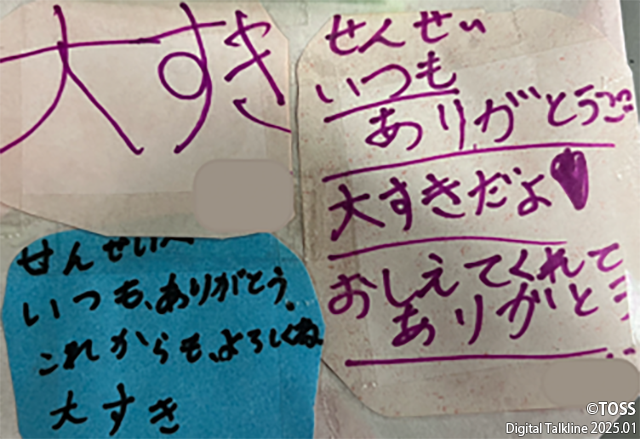 大すき
せんせい
いつも
ありがとう
大すきだよ
おしえてくれて
ありがとう
せんせいへ
いつも、ありがとう。
これからも、よろしくね
大すき
©TOSS
Digital Talkline 2025.01